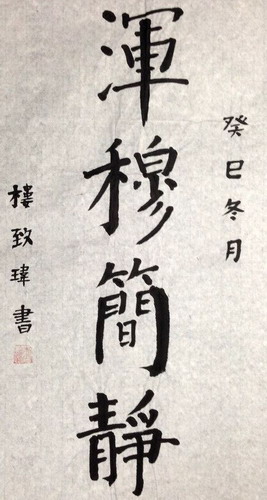 癸巳冬月
渾穆簡靜
樓致瑋書